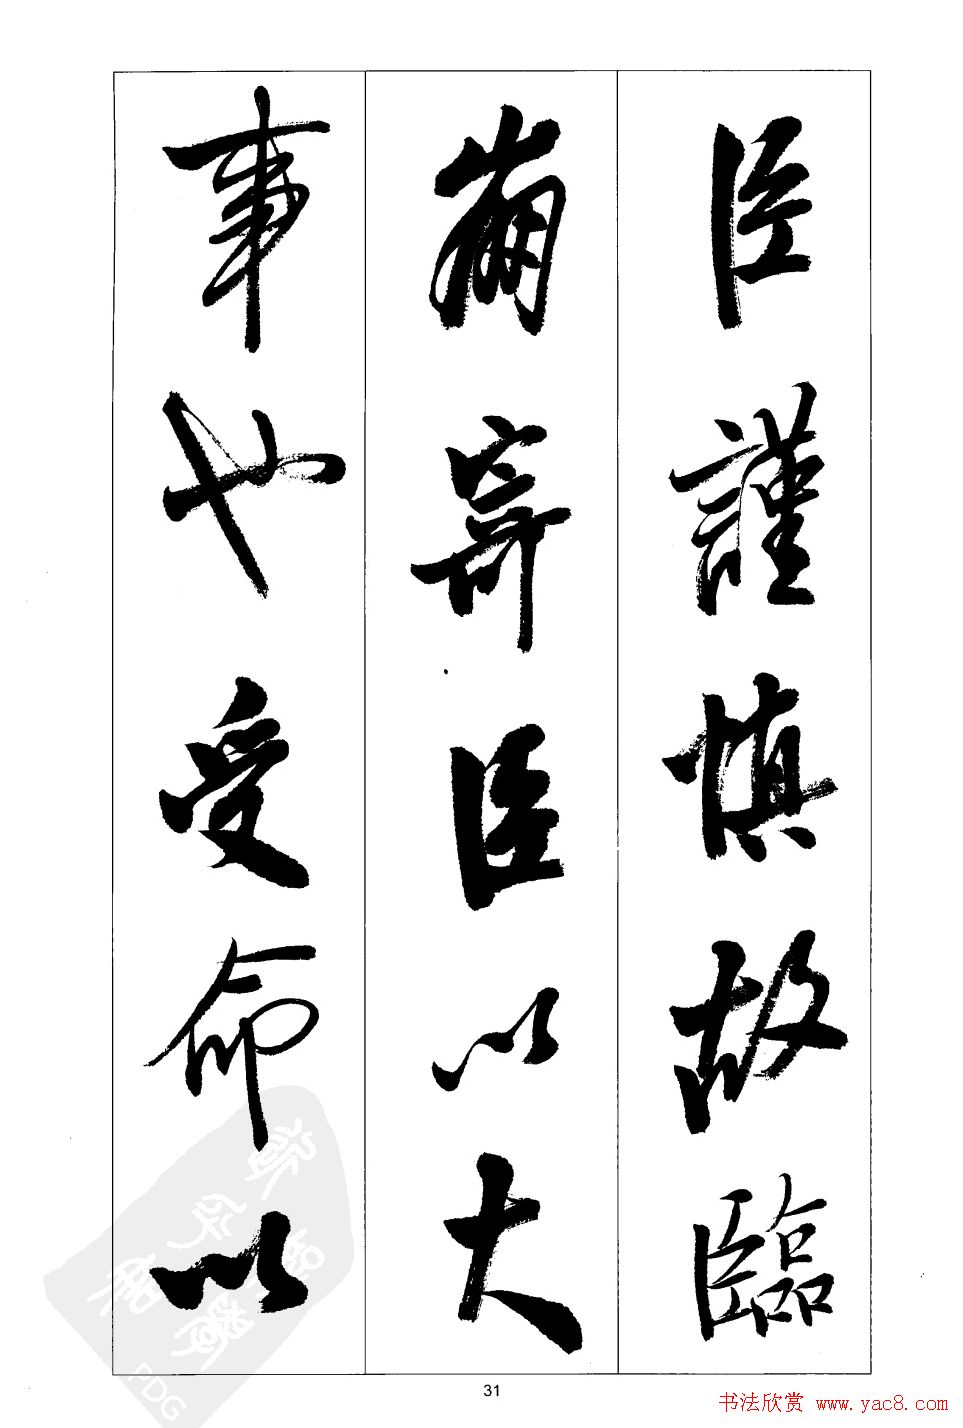 臣謹慎故臨
崩寄臣以大
事也受命以
31
书法欣赏 www.yac8.com
PDG